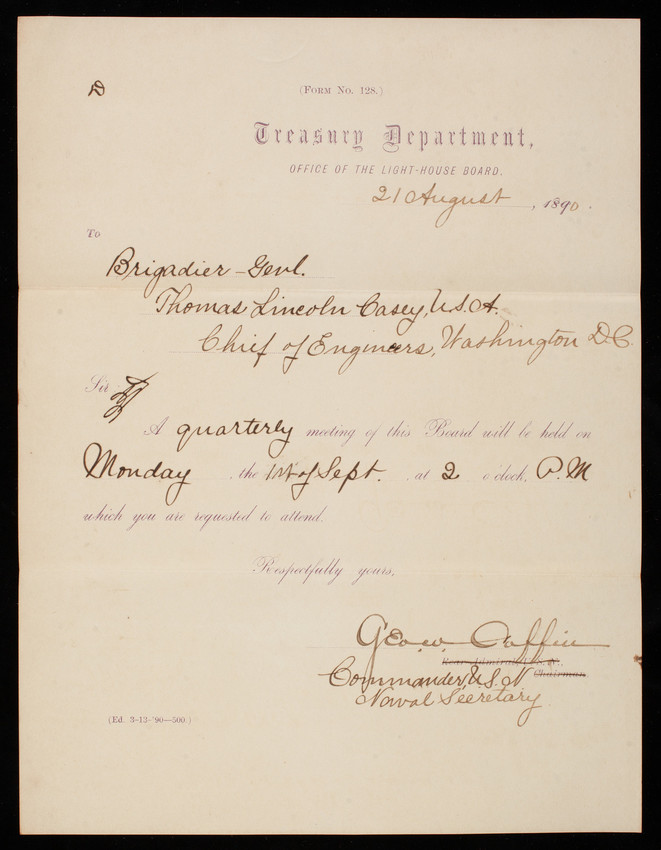 (FORM No. 128.)
Treasury Department,
OFFICE OF THE LIGHT-HOUSE BOARD,
21 August, 1890.
To
Brigadier-Genl.
Thomas Lincoln Casey, U.S.A.
Chief of Engineers, Washington D.C.
Sir:
A quarterly meeting of this Board will be held on
Monday, the 1st of Sept., at 2 o'clock, P.M
which you are requested to attend.
Respectfully yours,
Geo. W. Coffin
Rear-Admiral U.S.N.,
Commander, U.S.N Chairman
Naval Secretary
(Ed. 3-13-'90—500.)